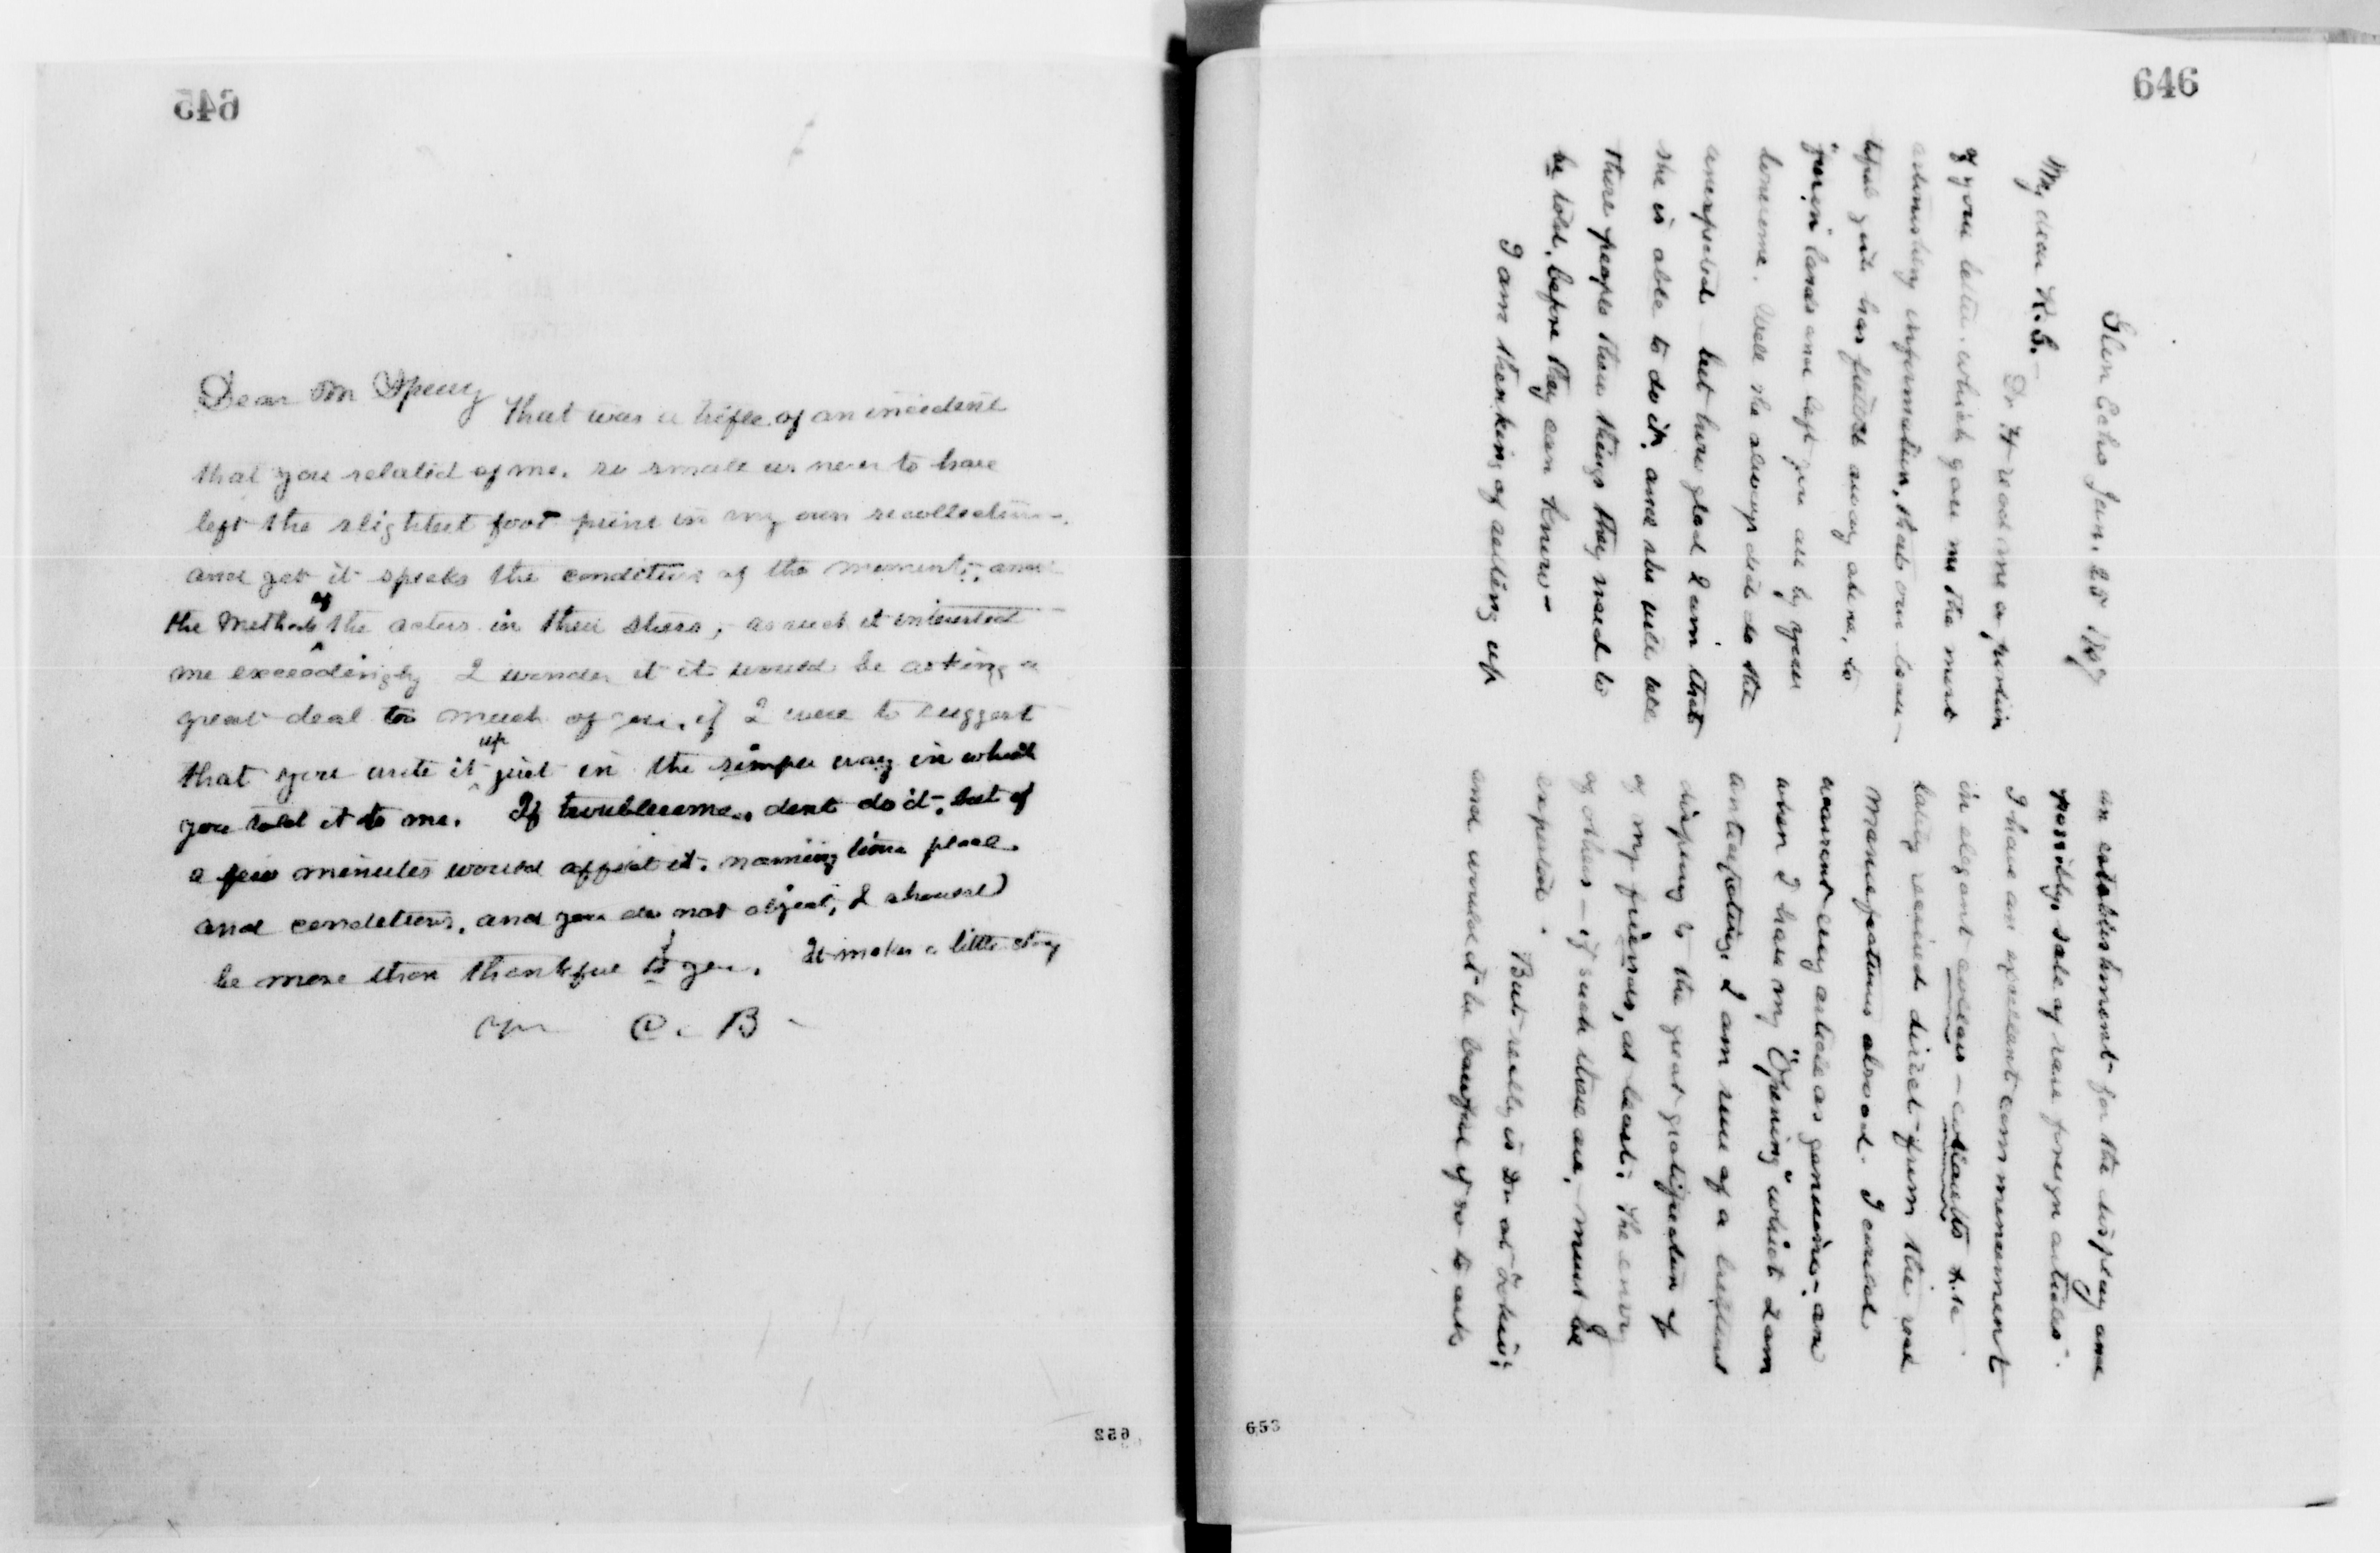 645
Dear Mr Speery
that was a trifle of an incident
that you related of me. so small as never to have
left the slightest foot print in my own recollection -
and yet it speaks the conditions of the moment, and
the methods of the actors in their stress, - as such it interested
me exceedingly I wonder if it would be asking a
great deal too much of you. if I were to suggest
that you write it up just in the simple way in which
you told it to me. If troublesome, dont do it, but if
a few minutes would effect it. naming time place
and conditions, and you do not object, I should
be more than thankful to you. It makes a little story
C. B -
652
646
Glen Echo Jan. 25 1909
My dear K.S. -
Dr H read me a portion
of your letter. which gave me the most
astonishing information, that our beau-
tiful girl has flitted away alone, to
"foreign" lands and left you all by your
lonesome. Well she always did do the
unexpected - but how glad I am that
she is able to do it, and she will tell
those people there things they need to
be told, before they can know -
I am thinking of setting up
an establishment for the display and
possibly, sale of rare foreign articles".
I have an excellent commencement
in elegant -
lately received direct from the real
Manufacturers abroad. I could
warrant every article as genuine - and
when I have my "Opening" which I am
anticipating I am sure of a brilliant
display to the great gratification of
of my friends, at least; the envy
of others - if such there are, - must be
expected.
But really is Dr at Tokio;
and would it be lawful if so to ask
653